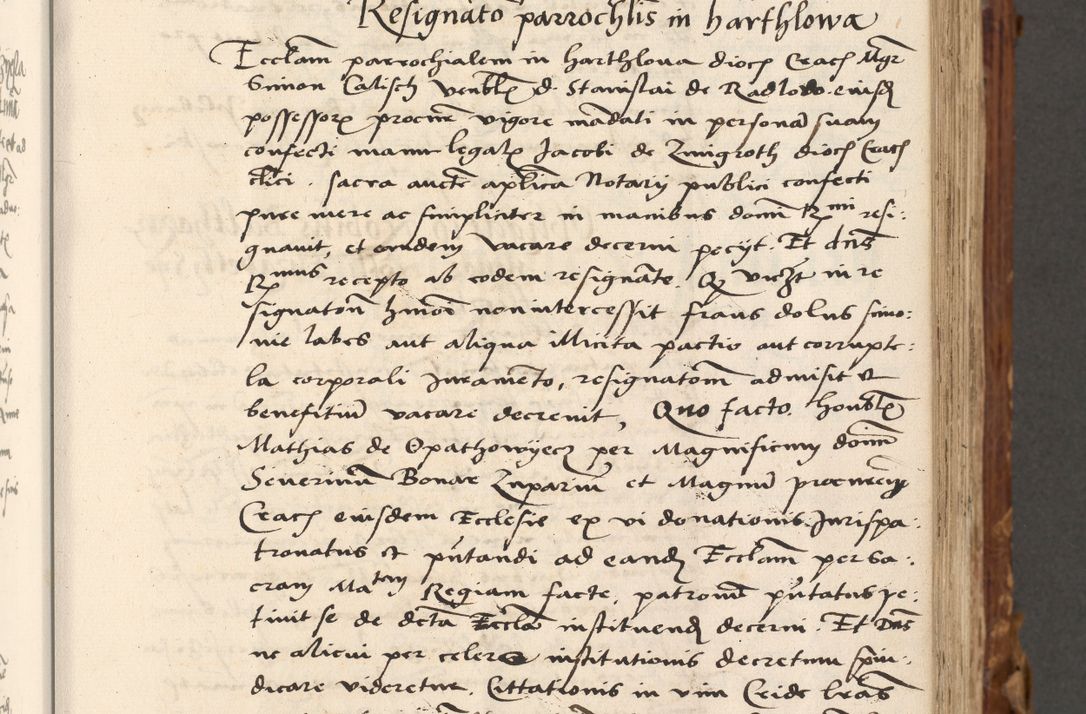 Resignatõ parrochłis in harthlowa
Eccłam parrochialem in harthlova dioc̃ Crac̃ Mgr
Simon Calisch venbłis d. Stanislai de Radlovo eiusd̃
possessoris procur̃ vigore mãdati in personã suam
confecti manu legalis Jacobi de Zmigroth dioc̃ Crac̃
clici. sacra auctẽ aplica Notarii publici confecti
pure mere ac simpliciter in manibus domĩ Rmi resi:
gnavit, et eandem vacare decerni peciit. Et dñs
Rmus recepto ab eodem resignãte. Q videlzt in re
signatoñ hmõi non intercessit fraus dolus simo:
nie labes aut aliqua illicita pactio aut corrupte:
la corporali Juramẽto, resignatoñm admisit et
benefitiũ vacare decrevit, Quo facto. honbłis
Mathias de Opathowyecz per Magnificum domĩ
Severinũ Bonar Zupariũ et Magnũ procur
Crac̃ eiusdem Ecclesie ex vi donationis Jurispa:
tronatus et pñtandi ad eand̃ Ecclam per Sa:
cram Matem Regiam facte, patronũ pñtatus pe:
tiuit se de dcta Eccla instituend̃ decerni. Et Dñs
ne alicui per celere institutionis decretum spin:
dicare videretur. Cittationis in vim Cridę lrãs